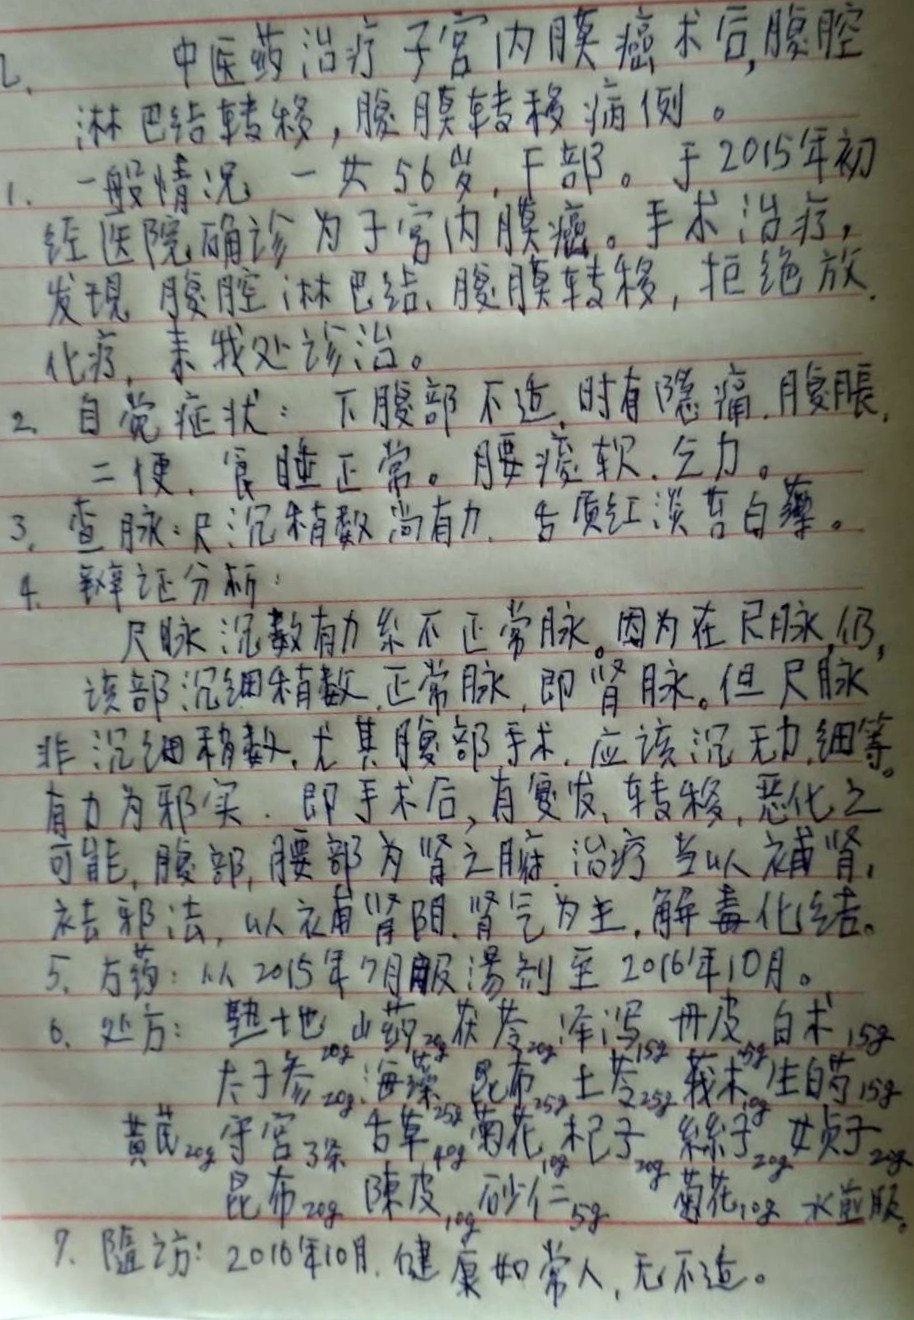 2. 中医药治疗子宫内膜癌术后,腹腔
淋巴结转移,腹膜转移病例。
1. 一般情况 一女56岁,干部。于2015年初
经医院确诊为子宫内膜癌。手术治疗,
发现腹腔淋巴结、腹膜转移,拒绝放.
化疗,来我处诊治。
2. 自觉症状:下腹部不适,时有隐痛.腹胀.
二便、食睡正常。腰痠软.乏力。
3. 查脉:尺沉稍数尚有力.舌质红淡苔白薄。
4. 辩证分析:
尺脉沉数有力系不正常脉。因为在尺脉,仍,
该部沉细稍数,正常脉,即肾脉。但尺脉
非沉细稍数,尤其腹部手术,应该沉无力,细等。
有力为邪实.即手术后,有复发、转移,恶化之
可能,腹部,腰部为肾之腑 治疗当以补肾,
祛邪法,以补肾阴.肾气为主,解毒化结。
5. 方药:从2015年7月服湯剂至2016年10月。
6. 处方:熟地 山药20g 茯苓20g 泽泻15g 丹皮 白术15g
太子参20g 海藻25g 昆布25g 土苓25g 莪术10g 生白芍15g
黄芪20g 守宫3条 舌草40g 菊花10g 杞子20g 絲子20g 女贞子20g
昆布20g 陳皮10g 砂仁5g 菊花10g 水煎服。
7. 隨访:2016年10月.健康如常人,无不适。